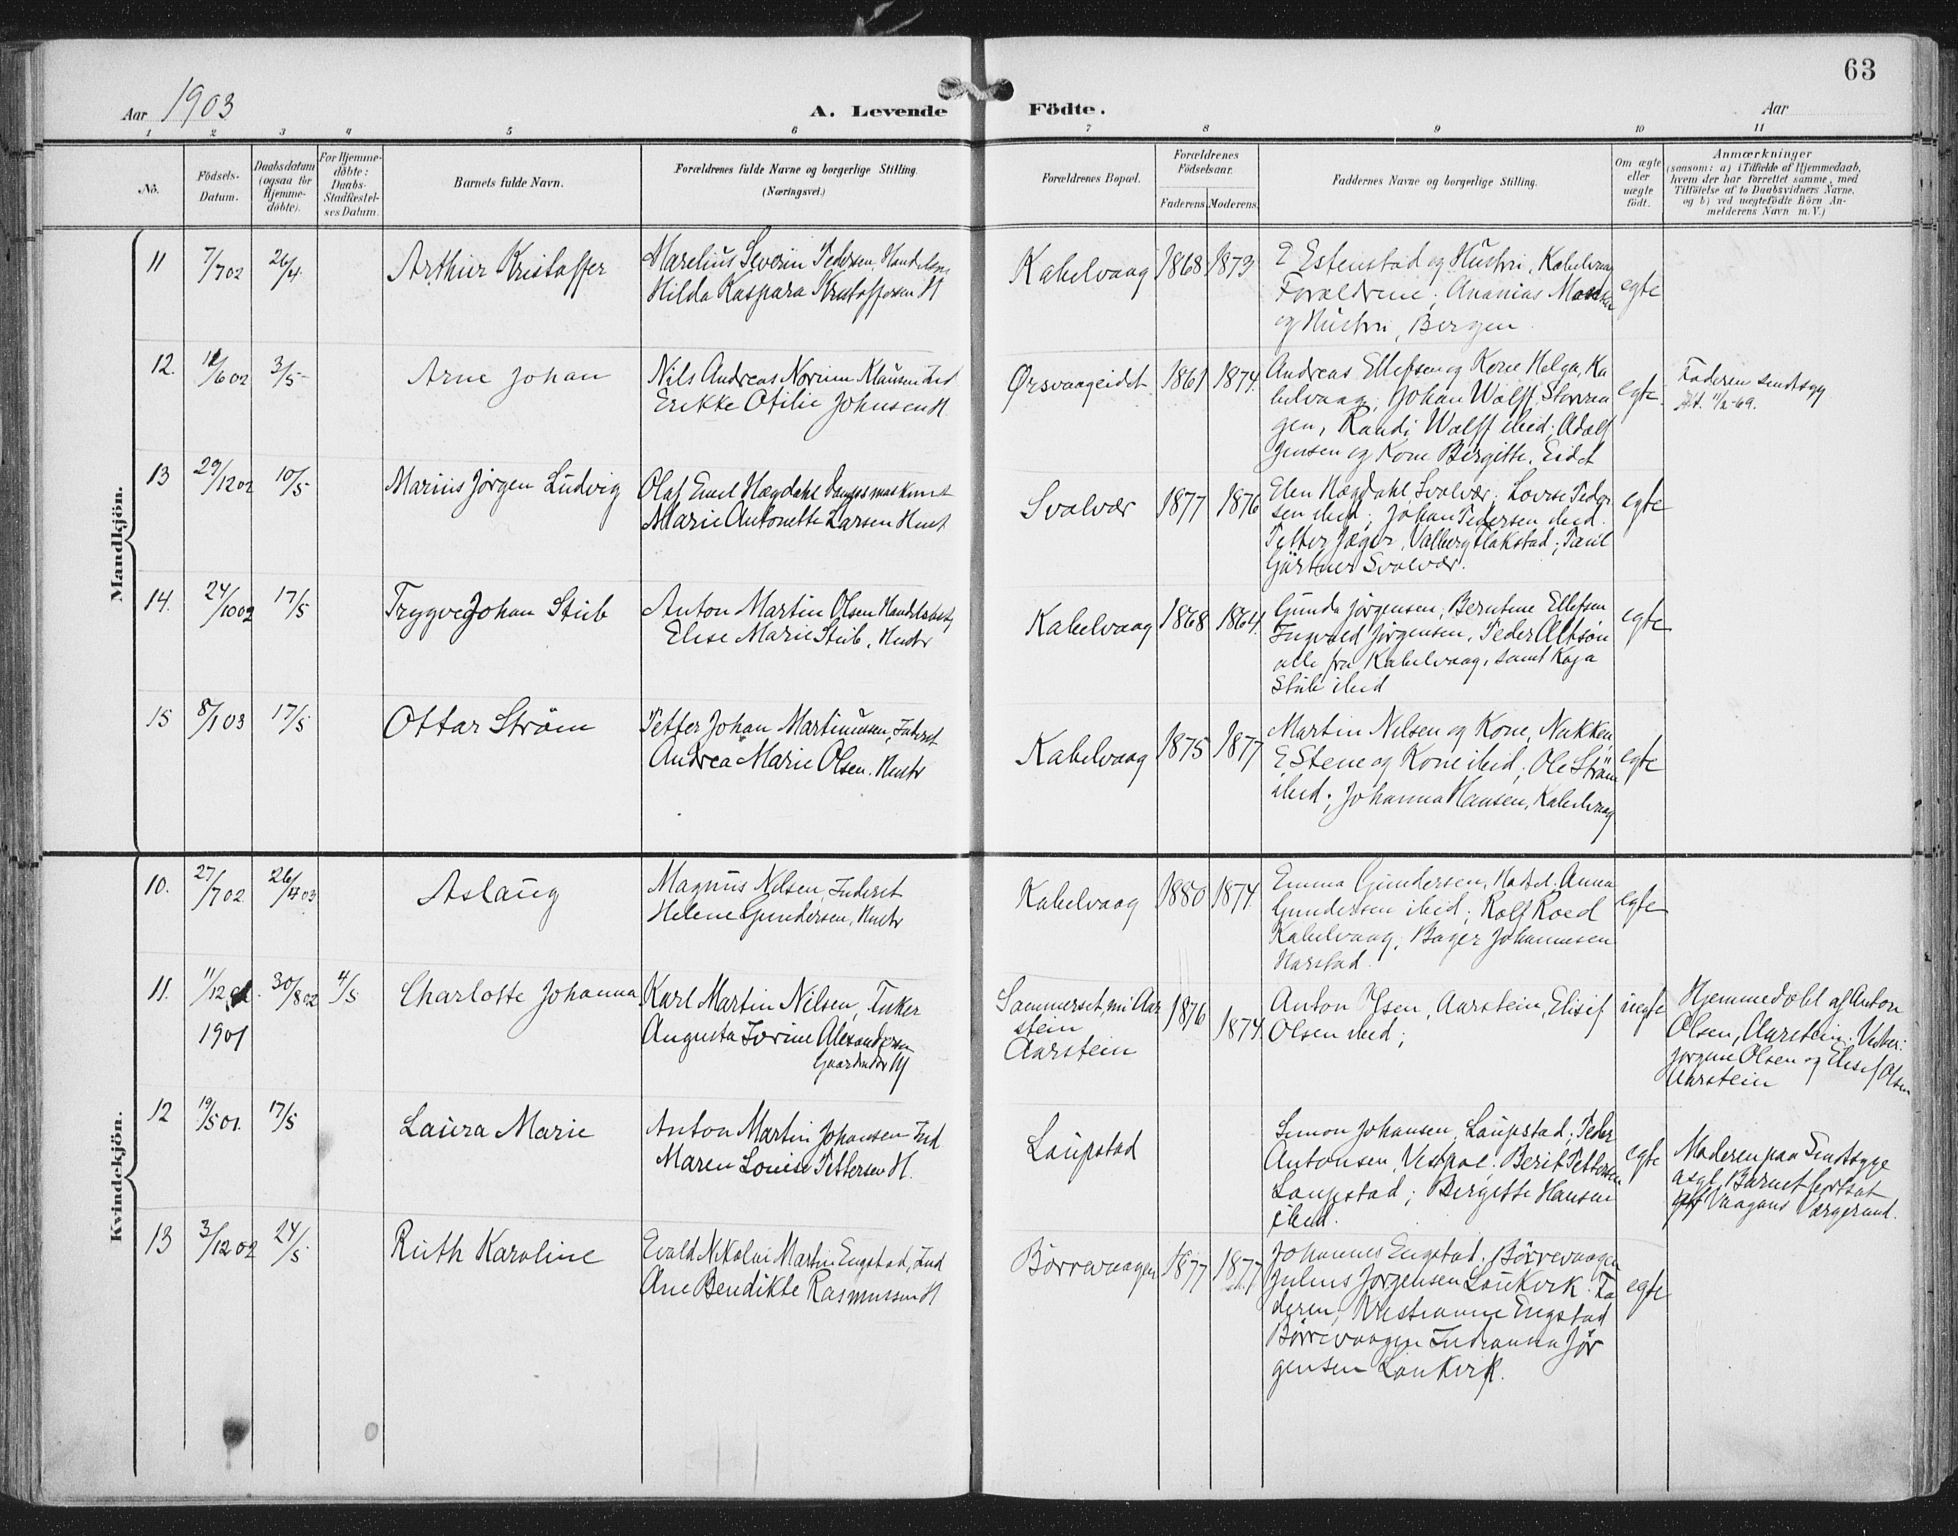 63
Aar 1903
A. Levende Födte.
Aar
1 2 3 4 5 6 7 8 9 10 11
No.
Födsels-
Datum.
Daabsdatum
(ogsaa for
Hjemme-
döbte).
For Hjemme-
döbte:
Daabs-
Stadfæstel-
ses Datum.
Barnets fulde Navn.
Forældrenes fulde Navne og borgerlige Stilling.
(Næringsvei.)
Forældrenes Bopæl.
Forældrenes
Födselsaar.
Faderens. Moderens.
Faddernes Navne og borgerlige Stilling.
Om ægte
eller
uægte
födt.
Anmærkninger
(saasom: a) i Tilfælde af Hjemmedaab,
hvem der har forrettet samme, med
Tilföielse af to Daabsvidners Navne,
og b) ved uægtefödte Börn An-
melderens Navn m. V.)
Mandkjön.
11 7/7 02 26/4 Arthur Kristoffer
Marelius Severin Pedersen,
Hilda Kaspara Kristoffersen H
Kabelvaag 1868 1873
E Estenstad og Hustru, Kabelvaag
Forældrene, Ananias
og Hustru, Bergen.
egte
12. /6 02 3/5 Arne Johan
Nils Andreas Norium Klausen Ind
Erikke Otilie Johnsen H
Ørsvaageidet 1861 1874.
Andreas Ellefsen og Kone Helga, Ka
belvaag; Johan Wolff,
gen, Randi Wolff ibid; Adolf
Jensen og Kone Birgitte, Eidet
egte.
Faderen sindssyg
11/2-69.
13 29/12 02 10/5 Marius Jörgen Ludvig
Olaf Emil Hægdahl
Marie Antonette Larsen Hust
Svolvær 1877 1876
Elen Hægdahl, Svolvær; Lovise Peder
sen ibid; Johan Pedersen ibid.
Petter Jæger, Valberg Flakstad; Paul
Gärtner Svolvær.
egte
14. 24/10 02 17/5 Trygve Johan Stub
Anton Martin Olsen
Elise Marie Stub, Hustr
Kabelvaag 1868 1864.
Gunda Jørgensen; Berntine Ellefsen
Ingvald Jørgensen, Peder
alle fra Kabelvaag, samt Kaja
Stub ibid
egte
15 8/1 03 17/5 Ottar Ström
Petter Johan Martinussen, Inderst
Andrea Marie Olsen. Hustr
Kabelvaag 1875 1877
Martin Nilsen og Kone, Nukken,
E Stene og Kone ibid; Ole Ström
ibid; Johanna Hansen, Kabelvaag
egte
Kvindekjön.
10. 27/7 02 26/4 03 Aslaug
Magnus Nilsen, Inderst
Helene Gundersen, Hustr
Kabelvaag 1880 1874
Emma Gundersen, Anna
Gundersen ibid; Rolf Roed
Kabelvaag; Bager Johannesen
Harstad.
egte
11. 11/12 1901 30/8 02 4/5 Charlotte Johanna
Karl Martin Nilsen,
Augusta Jorine Alexandersen
Sommerset, nu Aar
stein
Aarstein
1876 1874
Anton Olsen, Aarstein, Elisif
Olsen ibid;
uegte
Hjemmedøbt af Anton
Olsen, Aarstein.
Jørgine Olsen og Elisif Olsen
Aarstein
12 19/5 01. 17/5 Laura Marie
Anton Martin Johansen Ind
Maren Louise Pettersen H.
Laupstad
Simon Johansen, Laupstad; Peder
Antonsen, Vestpol. Berit Pettersen
Laupstad; Birgitte Hansen
ibid.
egte
Moderen paa Sindssyge
asyl. Barnet bortsat
Vaagans Værgeraad.
13 3/12 02 24/5 Ruth Karoline
Evald Nikolai Martin Engstad, Ind
Ane Bendikte Rasmussen H
Børrevaagen 1877 1877
Johannes Engstad, Børrevaagen
Julius Jørgensen Laukvik. Fa
deren, Kristianne Engstad
Børrevaagen Indianna Jør
gensen Laukvik.
egte